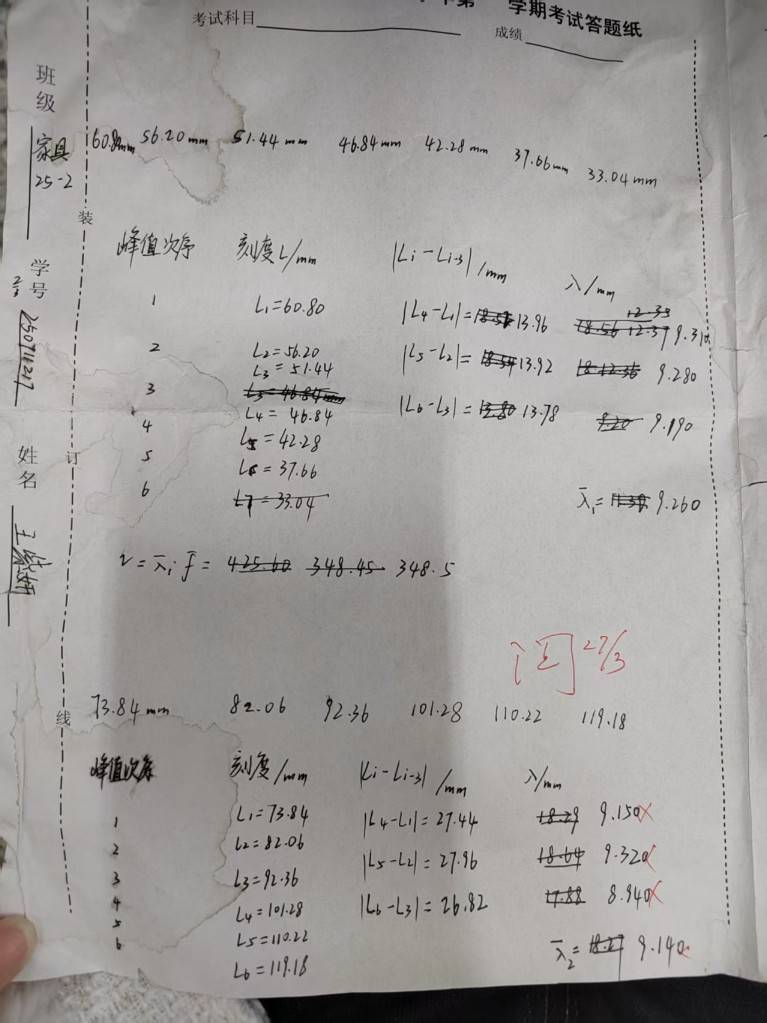 学期考试答题纸
考试科目
成绩
班级 家具 25-2
学号
姓名
装
订
线
60.80mm 56.20mm 51.44mm 46.84mm 42.28mm 37.66mm 33.04mm
峰值次序 刻度L/mm |Li-Li-3|/mm λ/mm
1 L1=60.80 |L4-L1|=13.96 9.310
2 L2=56.20 |L5-L2|=13.92 9.280
3 L3=51.44 |L6-L3|=13.78 9.190
L3=46.84mm
4 L4=46.84
5 L5=42.28
6 L6=37.66
L7=33.04
λ̄1=9.260
v=λ̄1·f̄=425.60 348.45 348.5
27/3
73.84mm 82.06 92.36 101.28 110.22 119.18
峰值次序 刻度/mm |Li-Li-3|/mm λ/mm
1 L1=73.84 |L4-L1|=27.44 18.29 9.150×
2 L2=82.06 |L5-L2|=27.96 18.64 9.320×
3 L3=92.36 |L6-L3|=26.82 17.88 8.940×
4 L4=101.28
5 L5=110.22
6 L6=119.18
λ̄2=9.140